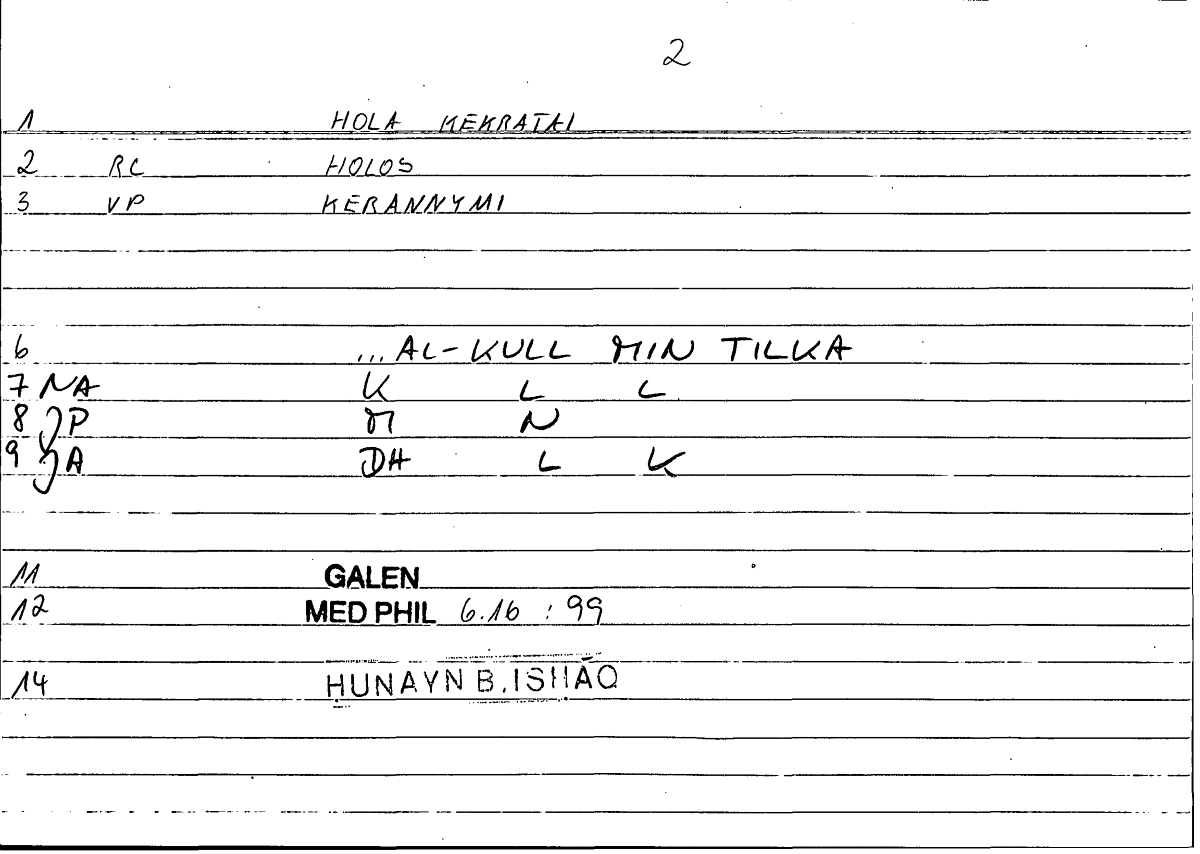 2
1 HOLA KEKRATAI
2 RC HOLOS
3 VP KERANNYMI
6 ...AL-KULL MIN TILKA
7 NA K L L
8 JP M N
9 JA DH L K
11 GALEN
12 MED PHIL 6.16 : 99
14 ḤUNAYN B. ISḤĀQ